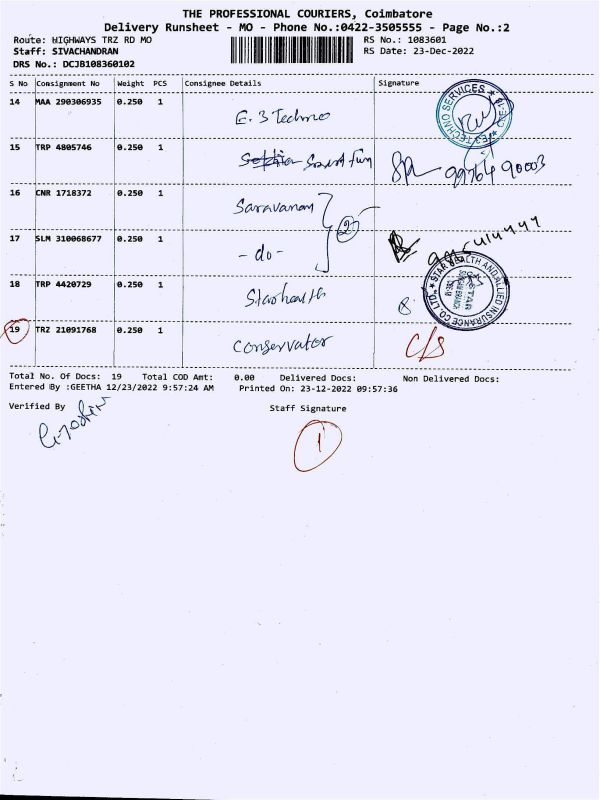 THE PROFESSIONAL COURIERS, Coimbatore
Delivery Runsheet - MO - Phone No.:0422-3505555 - Page No.:2
Route: HIGHWAYS TRZ RD MO RS No.: 1083601
Staff: SIVACHANDRAN RS Date: 23-Dec-2022
DRS No.: DCJB108360102
S No Consignment No Weight PCS Consignee Details Signature
14 MAA 290306935 0.250 1 E. 3 Techno
15 TRP 4805746 0.250 1
16 CNR 1718372 0.250 1 Saravanan
17 SLM 310068677 0.250 1 - do - 2
18 TRP 4420729 0.250 1 Starhealth
STAR HEALTH AND ALLIED INSURANCE CO. LTD.
19 TRZ 21091768 0.250 1 Conservator C/S
Total No. Of Docs: 19 Total COD Amt: 0.00 Delivered Docs: Non Delivered Docs:
Entered By :GEETHA 12/23/2022 9:57:24 AM Printed On: 23-12-2022 09:57:36
Verified By Staff Signature
1